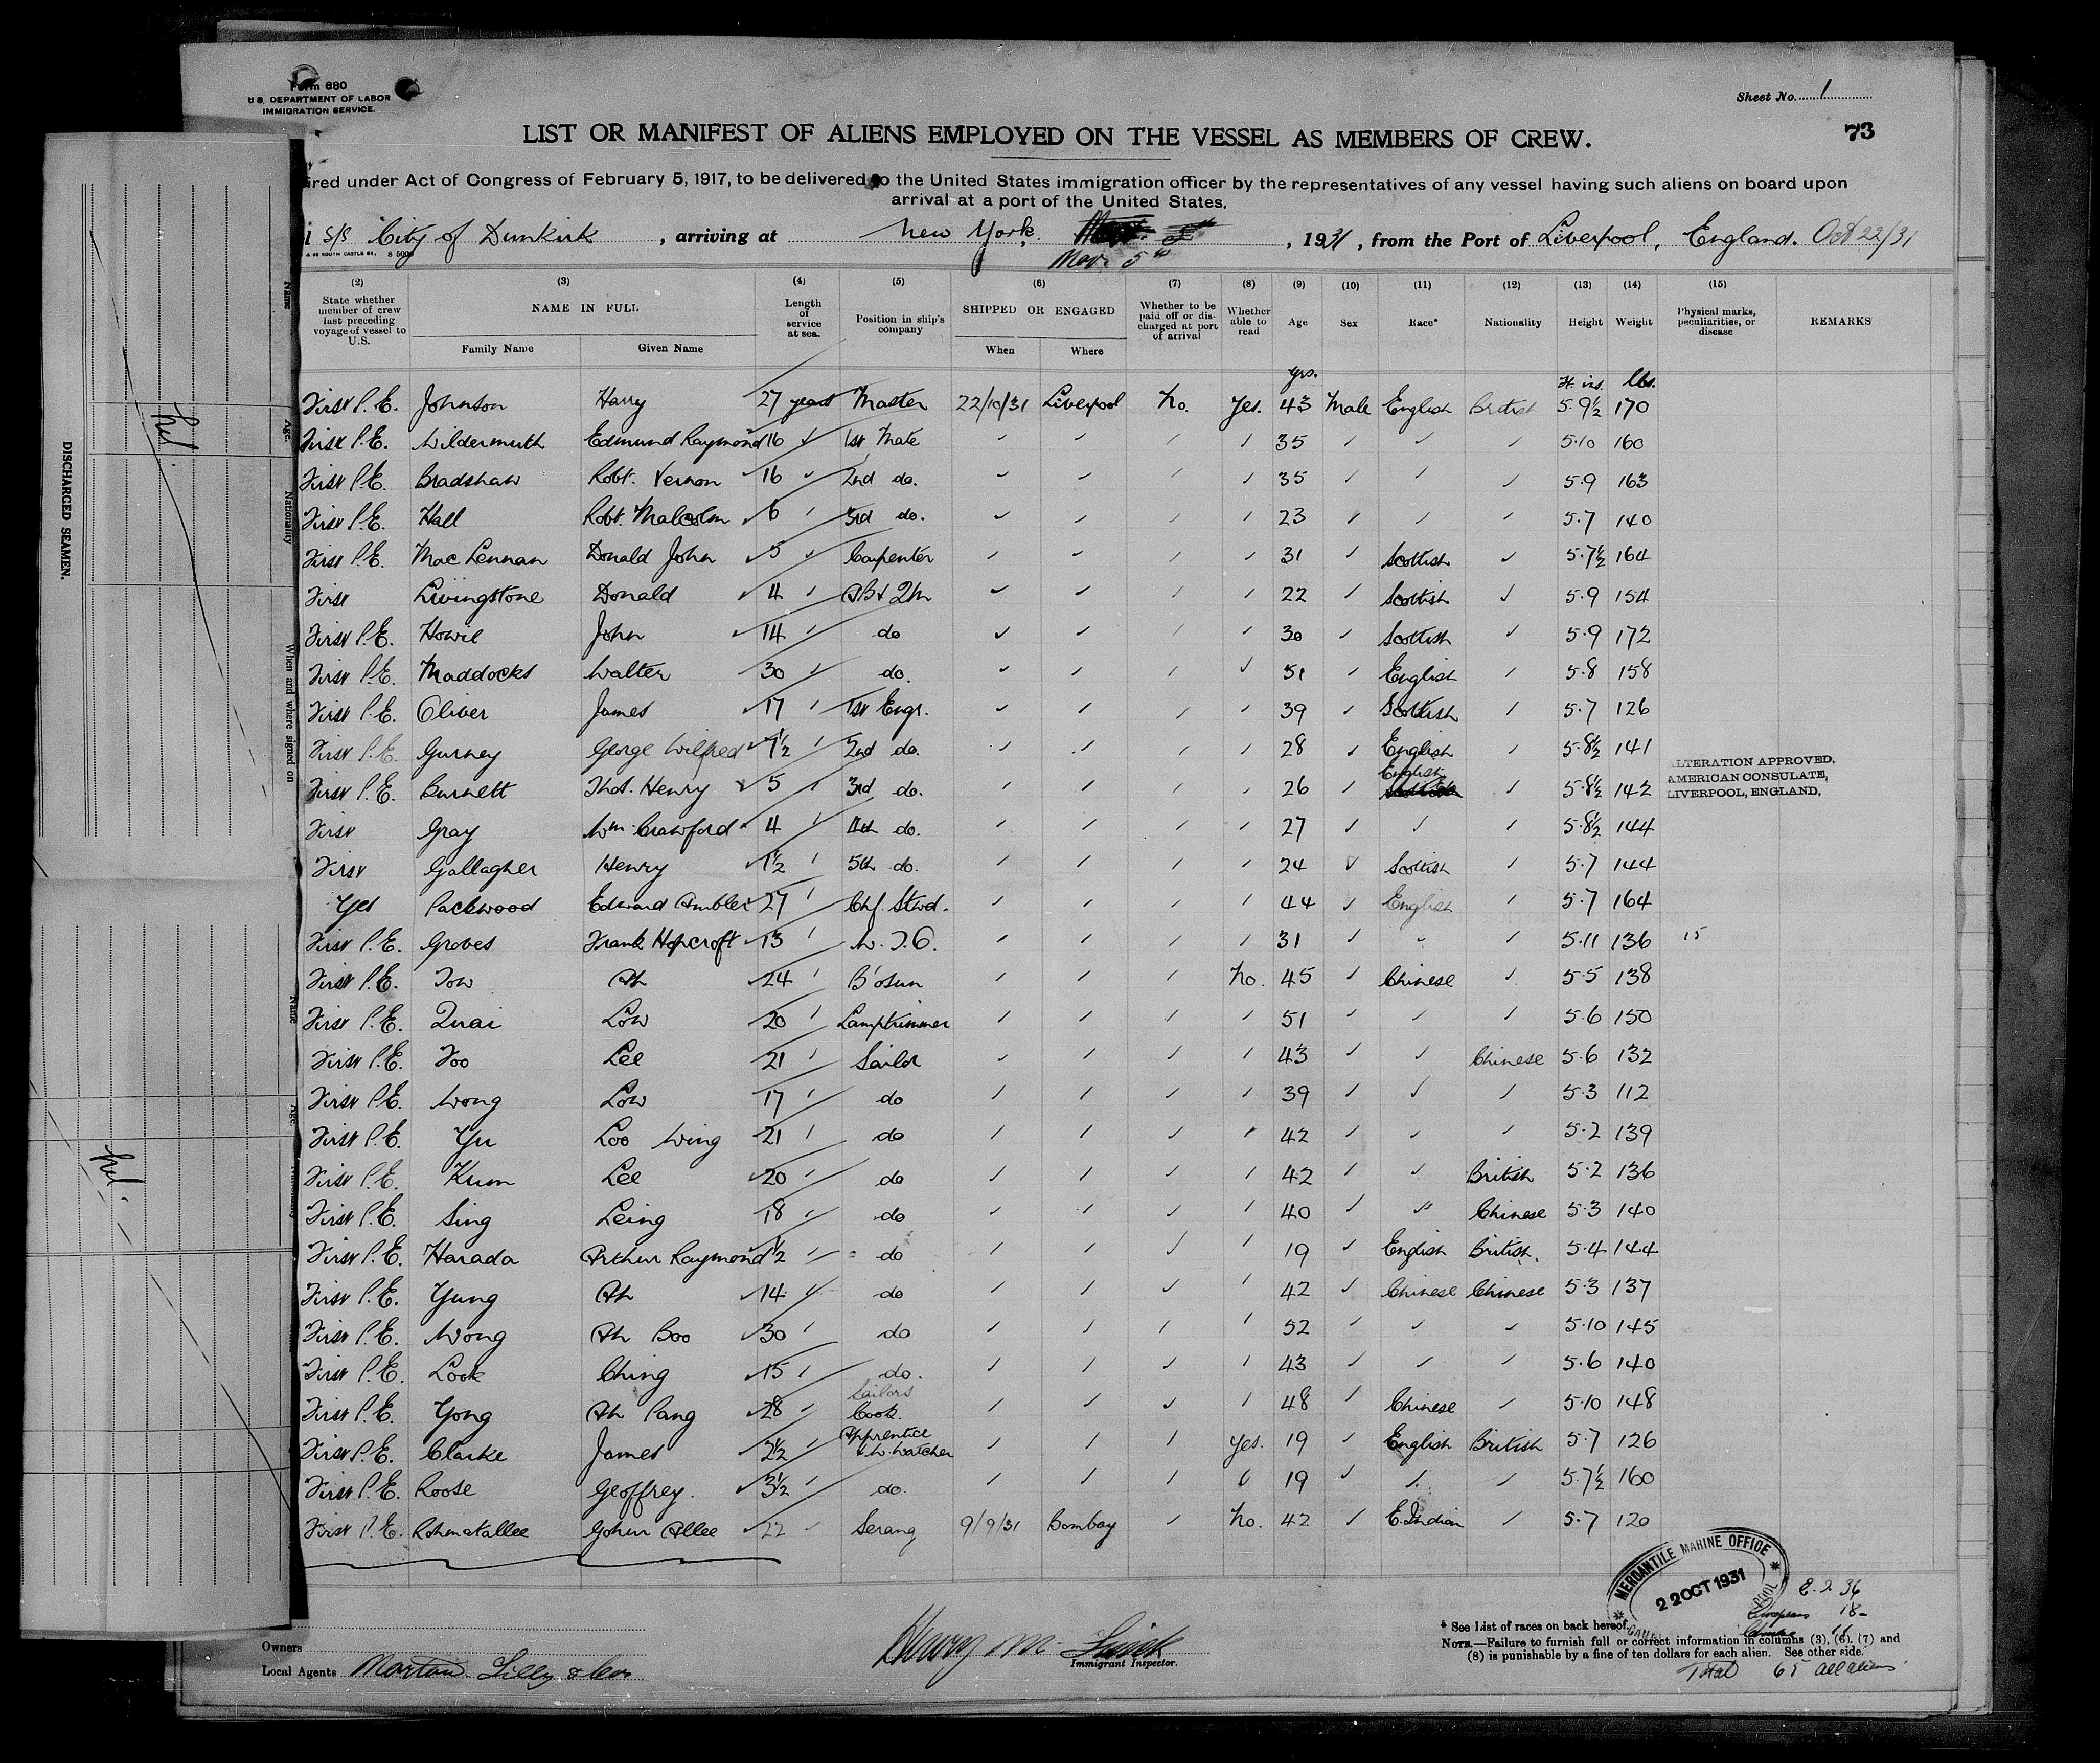 Form 680
U.S. DEPARTMENT OF LABOR
IMMIGRATION SERVICE.
Sheet No. 1
73
LIST OR MANIFEST OF ALIENS EMPLOYED ON THE VESSEL AS MEMBERS OF CREW.
ired under Act of Congress of February 5, 1917, to be delivered to the United States immigration officer by the representatives of any vessel having such aliens on board upon
arrival at a port of the United States.
S/S City of Dunkirk, arriving at New York. Nov. 5th, 1931, from the Port of Liverpool, England. Oct 22/31
(2) (3) (4) (5) (6) (7) (8) (9) (10) (11) (12) (13) (14) (15)
State whether member of crew last preceding voyage of vessel to U.S. NAME IN FULL Length of service at sea. Position in ship's company SHIPPED OR ENGAGED Whether to be paid off or discharged at port of arrival Whether able to read Age Sex Race* Nationality Height Weight Physical marks, peculiarities, or disease REMARKS
Family Name Given Name When Where
yrs. ft. ins. lbs.
First P.E. Johnson Harry 27 years Master 22/10/31 Liverpool No. Yes. 43 Male English British 5.9½ 170
First P.E. Wildermuth Edmund Raymond 16 1st Mate 35 5.10 160
First P.E. Bradshaw Robt. Vernon 16 2nd do. 35 5.9 163
First P.E. Hall Robt. Malcolm 6 3rd do. 23 5.7 140
First P.E. MacLennan Donald John 5 Carpenter 31 Scottish 5.7½ 164
First Livingstone Donald 4 AB & QM 22 Scottish 5.9 154
First P.E. Howie John 14 do 30 Scottish 5.9 172
First P.E. Maddocks Walter 30 do. 51 English 5.8 158
First P.E. Oliver James 17 1st Engr. 39 Scottish 5.7 126
First P.E. Gurney George Wilfred 7½ 2nd do. 28 English 5.8½ 141
First P.E. Burnett Thos. Henry 5 3rd do. 26 English 5.8½ 142
ALTERATION APPROVED,
AMERICAN CONSULATE,
LIVERPOOL, ENGLAND,
First Gray Wm. Crawford 4 4th do. 27 5.8½ 144
First Gallagher Henry 1½ 5th do. 24 Scottish 5.7 144
Yes Packwood Edward Ambler 27 Chf. Stwd. 44 English 5.7 164
First P.E. Groves Frank Hopcroft 13 W.T.O. 31 5.11 136 15
First P.E. Tow Ah 24 B'osun No. 45 Chinese 5.5 138
First P.E. Quai Low 20 Lamptrimmer 51 5.6 150
First P.E. Foo Lee 21 Sailor 43 Chinese 5.6 132
First P.E. Wong Low 17 do 39 5.3 112
First P.E. Yu Loo Wing 21 do 42 5.2 139
First P.E. Kum Lee 20 do 42 British 5.2 136
First P.E. Sing Leing 18 do 40 Chinese 5.3 140
First P.E. Harada Arthur Raymond ½ do 19 English British. 5.4 144
First P.E. Yung Ah 14 do 42 Chinese Chinese 5.3 137
First P.E. Wong Ah Boo 30 do 52 5.10 145
First P.E. Look Ching 15 do. 43 5.6 140
First P.E. Yong Ah Pang 28 Sailors Cook. 48 Chinese 5.10 148
First P.E. Clarke James 2½ Apprentice & W. Watcher Yes. 19 English British 5.7 126
First P.E. Roose Geoffrey. 3½ do. 19 5.7½ 160
First P.E. Rohmatallee Gohur Allee 22 Serang 9/9/31 Bombay No. 42 E.Indian 5.7 120
MERCANTILE MARINE OFFICE
22 OCT 1931
Europeans 18
Chinese
Total 65 all aliens
Owners
Local Agents
Immigrant Inspector.
* See List of races on back hereof.
NOTE.—Failure to furnish full or correct information in columns (3), (6), (7) and
(8) is punishable by a fine of ten dollars for each alien. See other side.
DISCHARGED SEAMEN.
Name
Age.
Nationality
When and where signed on
Name
Age.